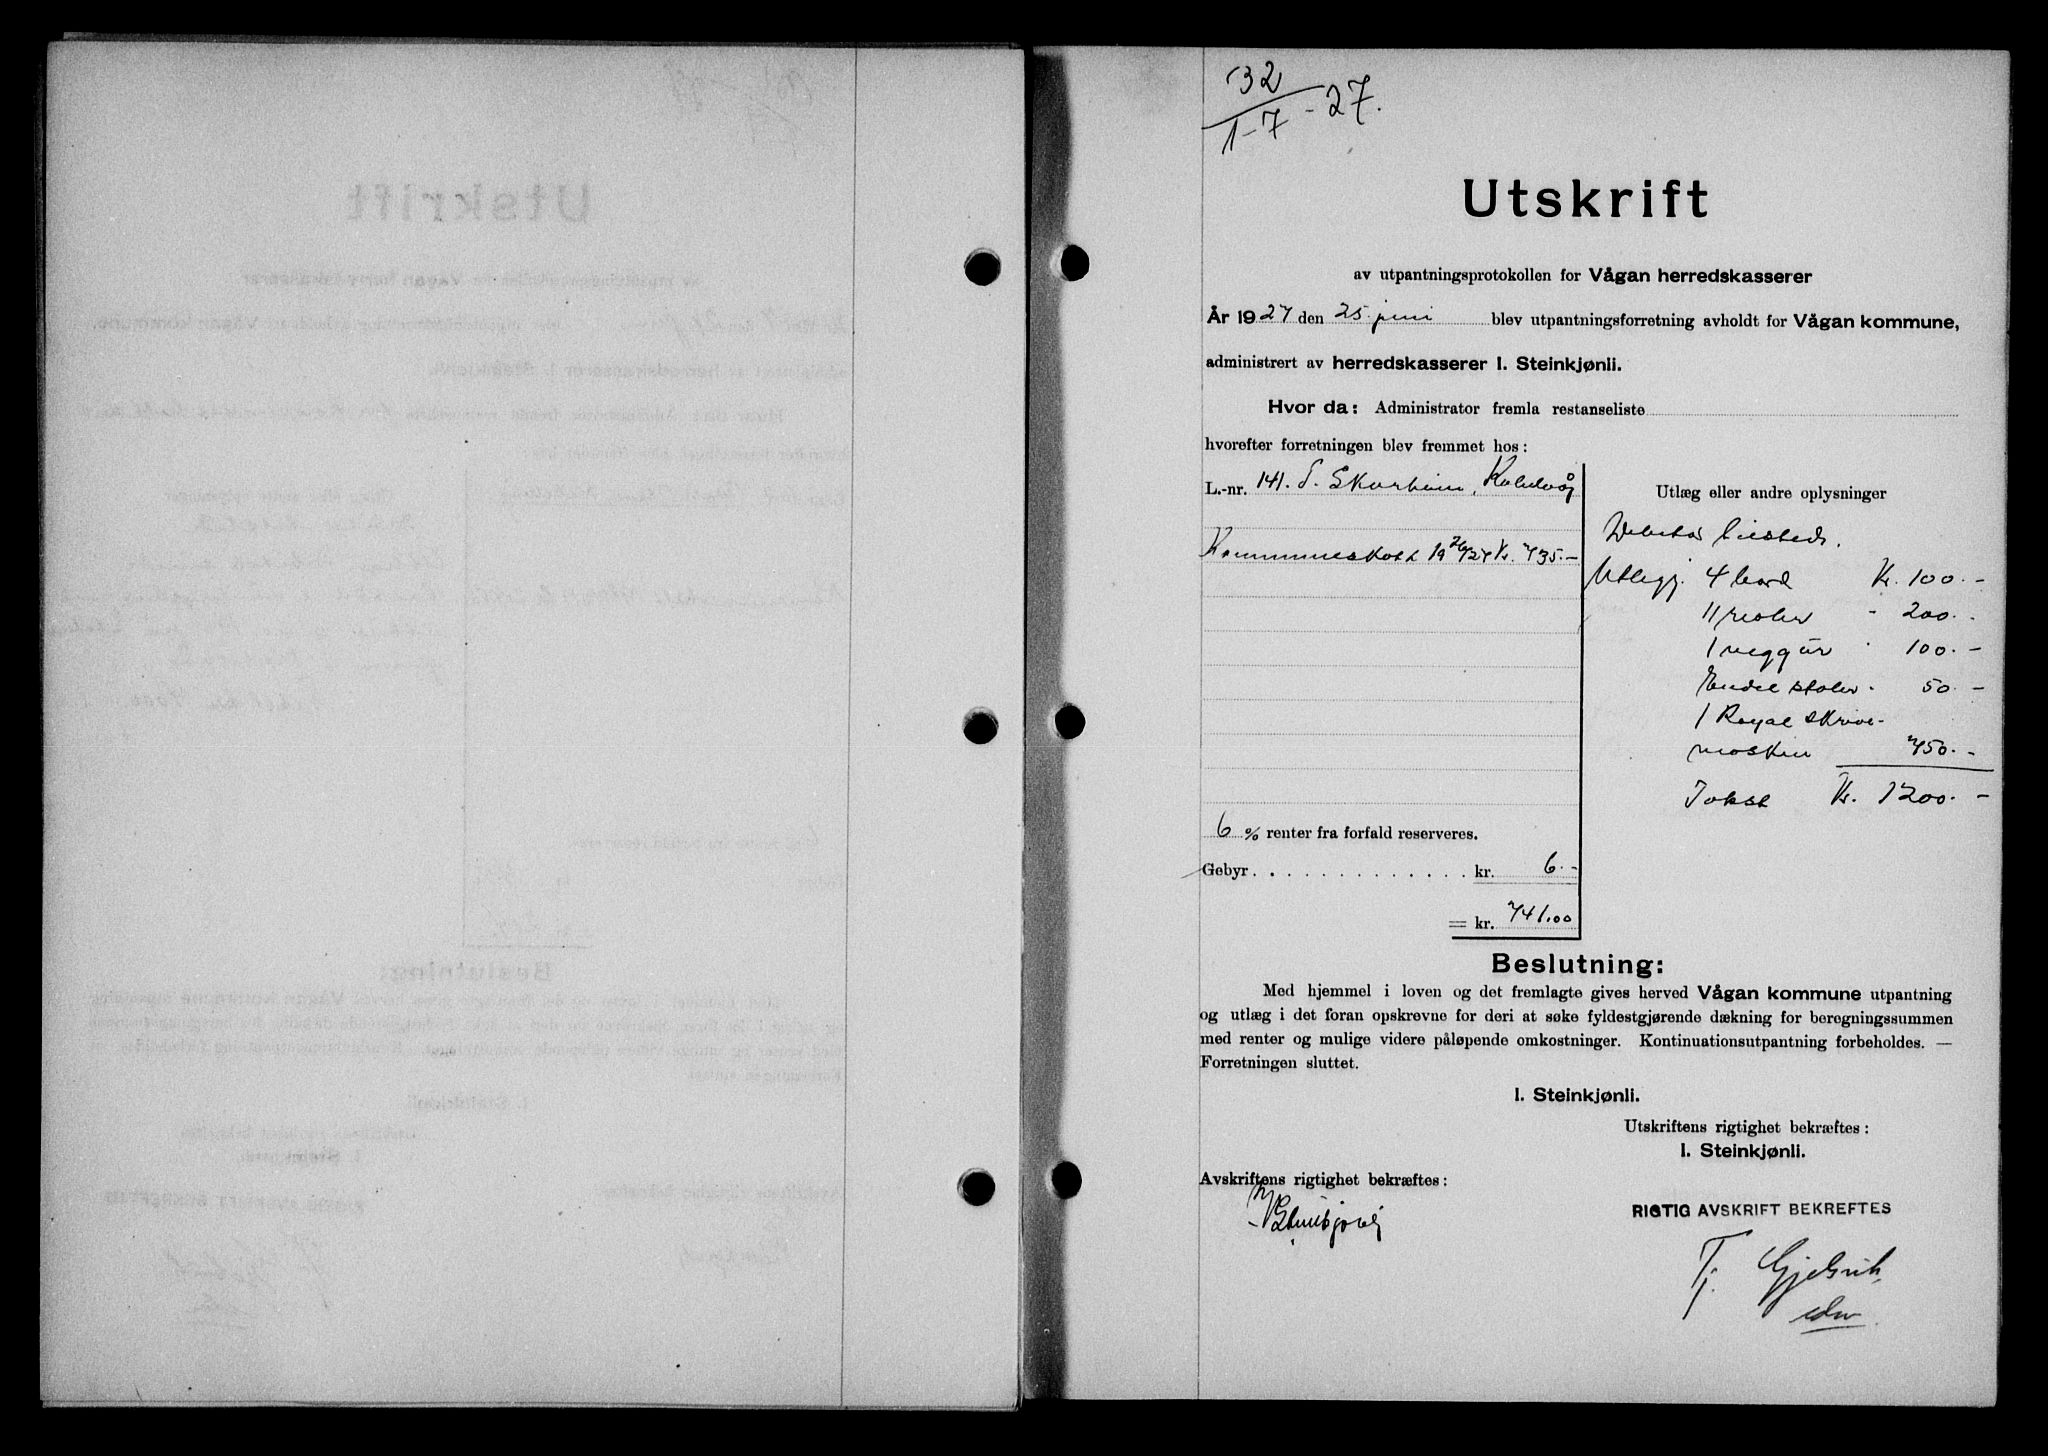 32
1-7-27.
Utskrift
av utpantningsprotokollen for Vågan herredskasserer
År 1927 den 25 juni blev utpantningsforretning avholdt for Vågan kommune,
administrert av herredskasserer I. Steinkjønli.
Hvor da: Administrator fremla restanseliste
hvorefter forretningen blev fremmet hos:
L.-nr. 141.
Utlæg eller andre oplysninger
Kommuneskatt 1926/27 Kr. 735.-
Utlegg. 4 bord Kr. 100.-
11 reoler - 200.-
1 veggur - 100.-
Endel stoler - 50.-
1 Royal skrive-
maskin 750.-
Tokst Kr. 1200.-
6 % renter fra forfald reserveres.
Gebyr. . . . . . . . . . . . . kr. 6.-
= kr. 741.00
Beslutning:
Med hjemmel i loven og det fremlagte gives herved Vågan kommune utpantning
og utlæg i det foran opskrevne for deri at søke fyldestgjørende dækning for beregningssummen
med renter og mulige videre påløpende omkostninger. Kontinuationsutpantning forbeholdes. —
Forretningen sluttet.
I. Steinkjønli.
Utskriftens rigtighet bekræftes:
I. Steinkjønli.
Avskriftens rigtighet bekræftes:
RIGTIG AVSKRIFT BEKREFTES